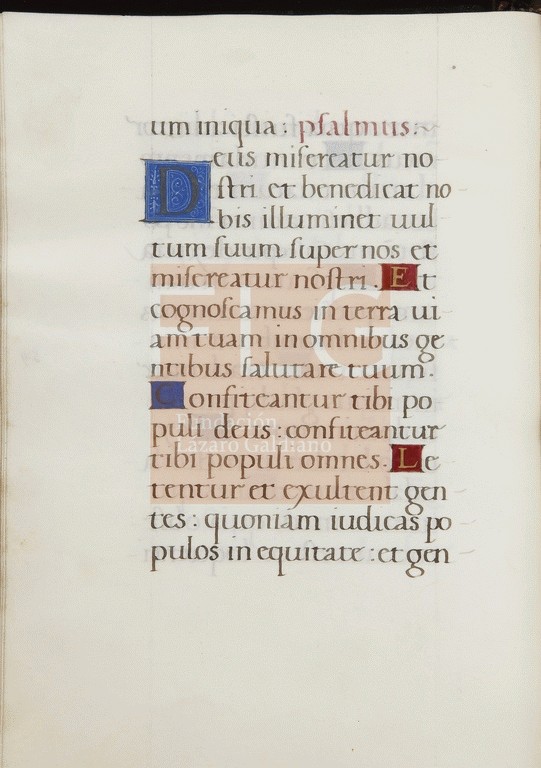 um iniqua : psalmus :~
Deus misereatur no
stri et benedicat no
bis illuminet uul
tum suum super nos et
misereatur nostri. Et
cognoscamus in terra ui
am tuam in omnibus ge
ntibus salutare tuum.
Confiteantur tibi po
puli deus : confiteantur
tibi populi omnes. Le
tentur et exultent gen
tes : quoniam iudicas po
pulos in equitate : et gen
FLG
Fundación
Lázaro Galdiano